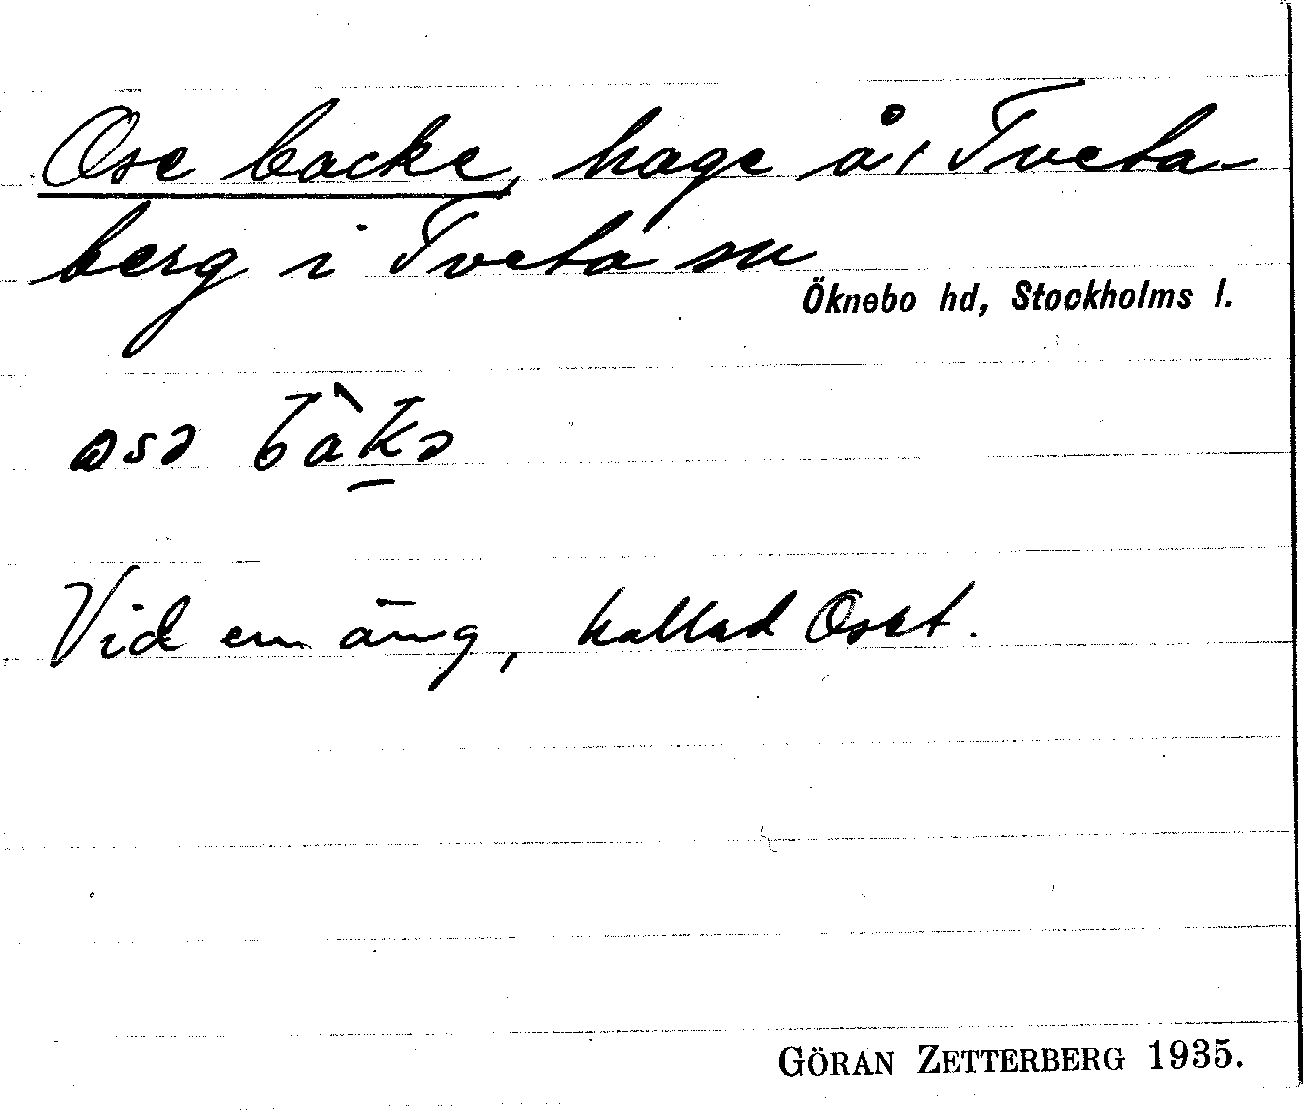 Ose backe, hage å/ Tveta-
berg i Tveta sn
Öknebo hd, Stockholms l.
osə bàkə
Vid en äng, kallad Oset.
GÖRAN ZETTERBERG 1935.